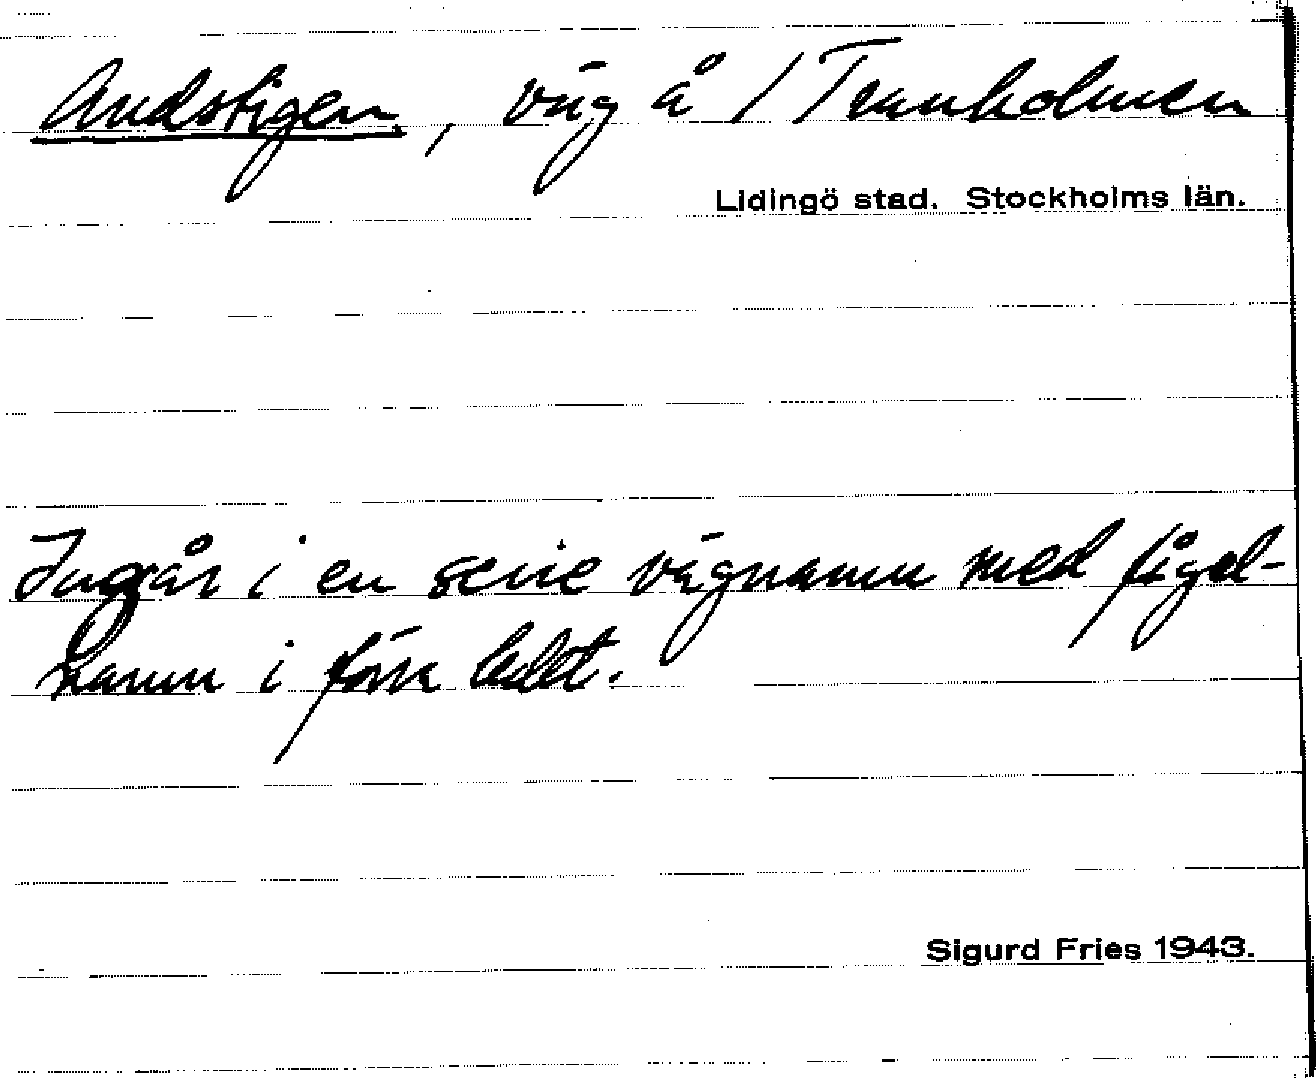 Andstigen, väg å / Tranholmen
Lidingö stad. Stockholms län.
Ingår i en serie vägnamn med fågel-
namn i förra ledet.
Sigurd Fries 1943.